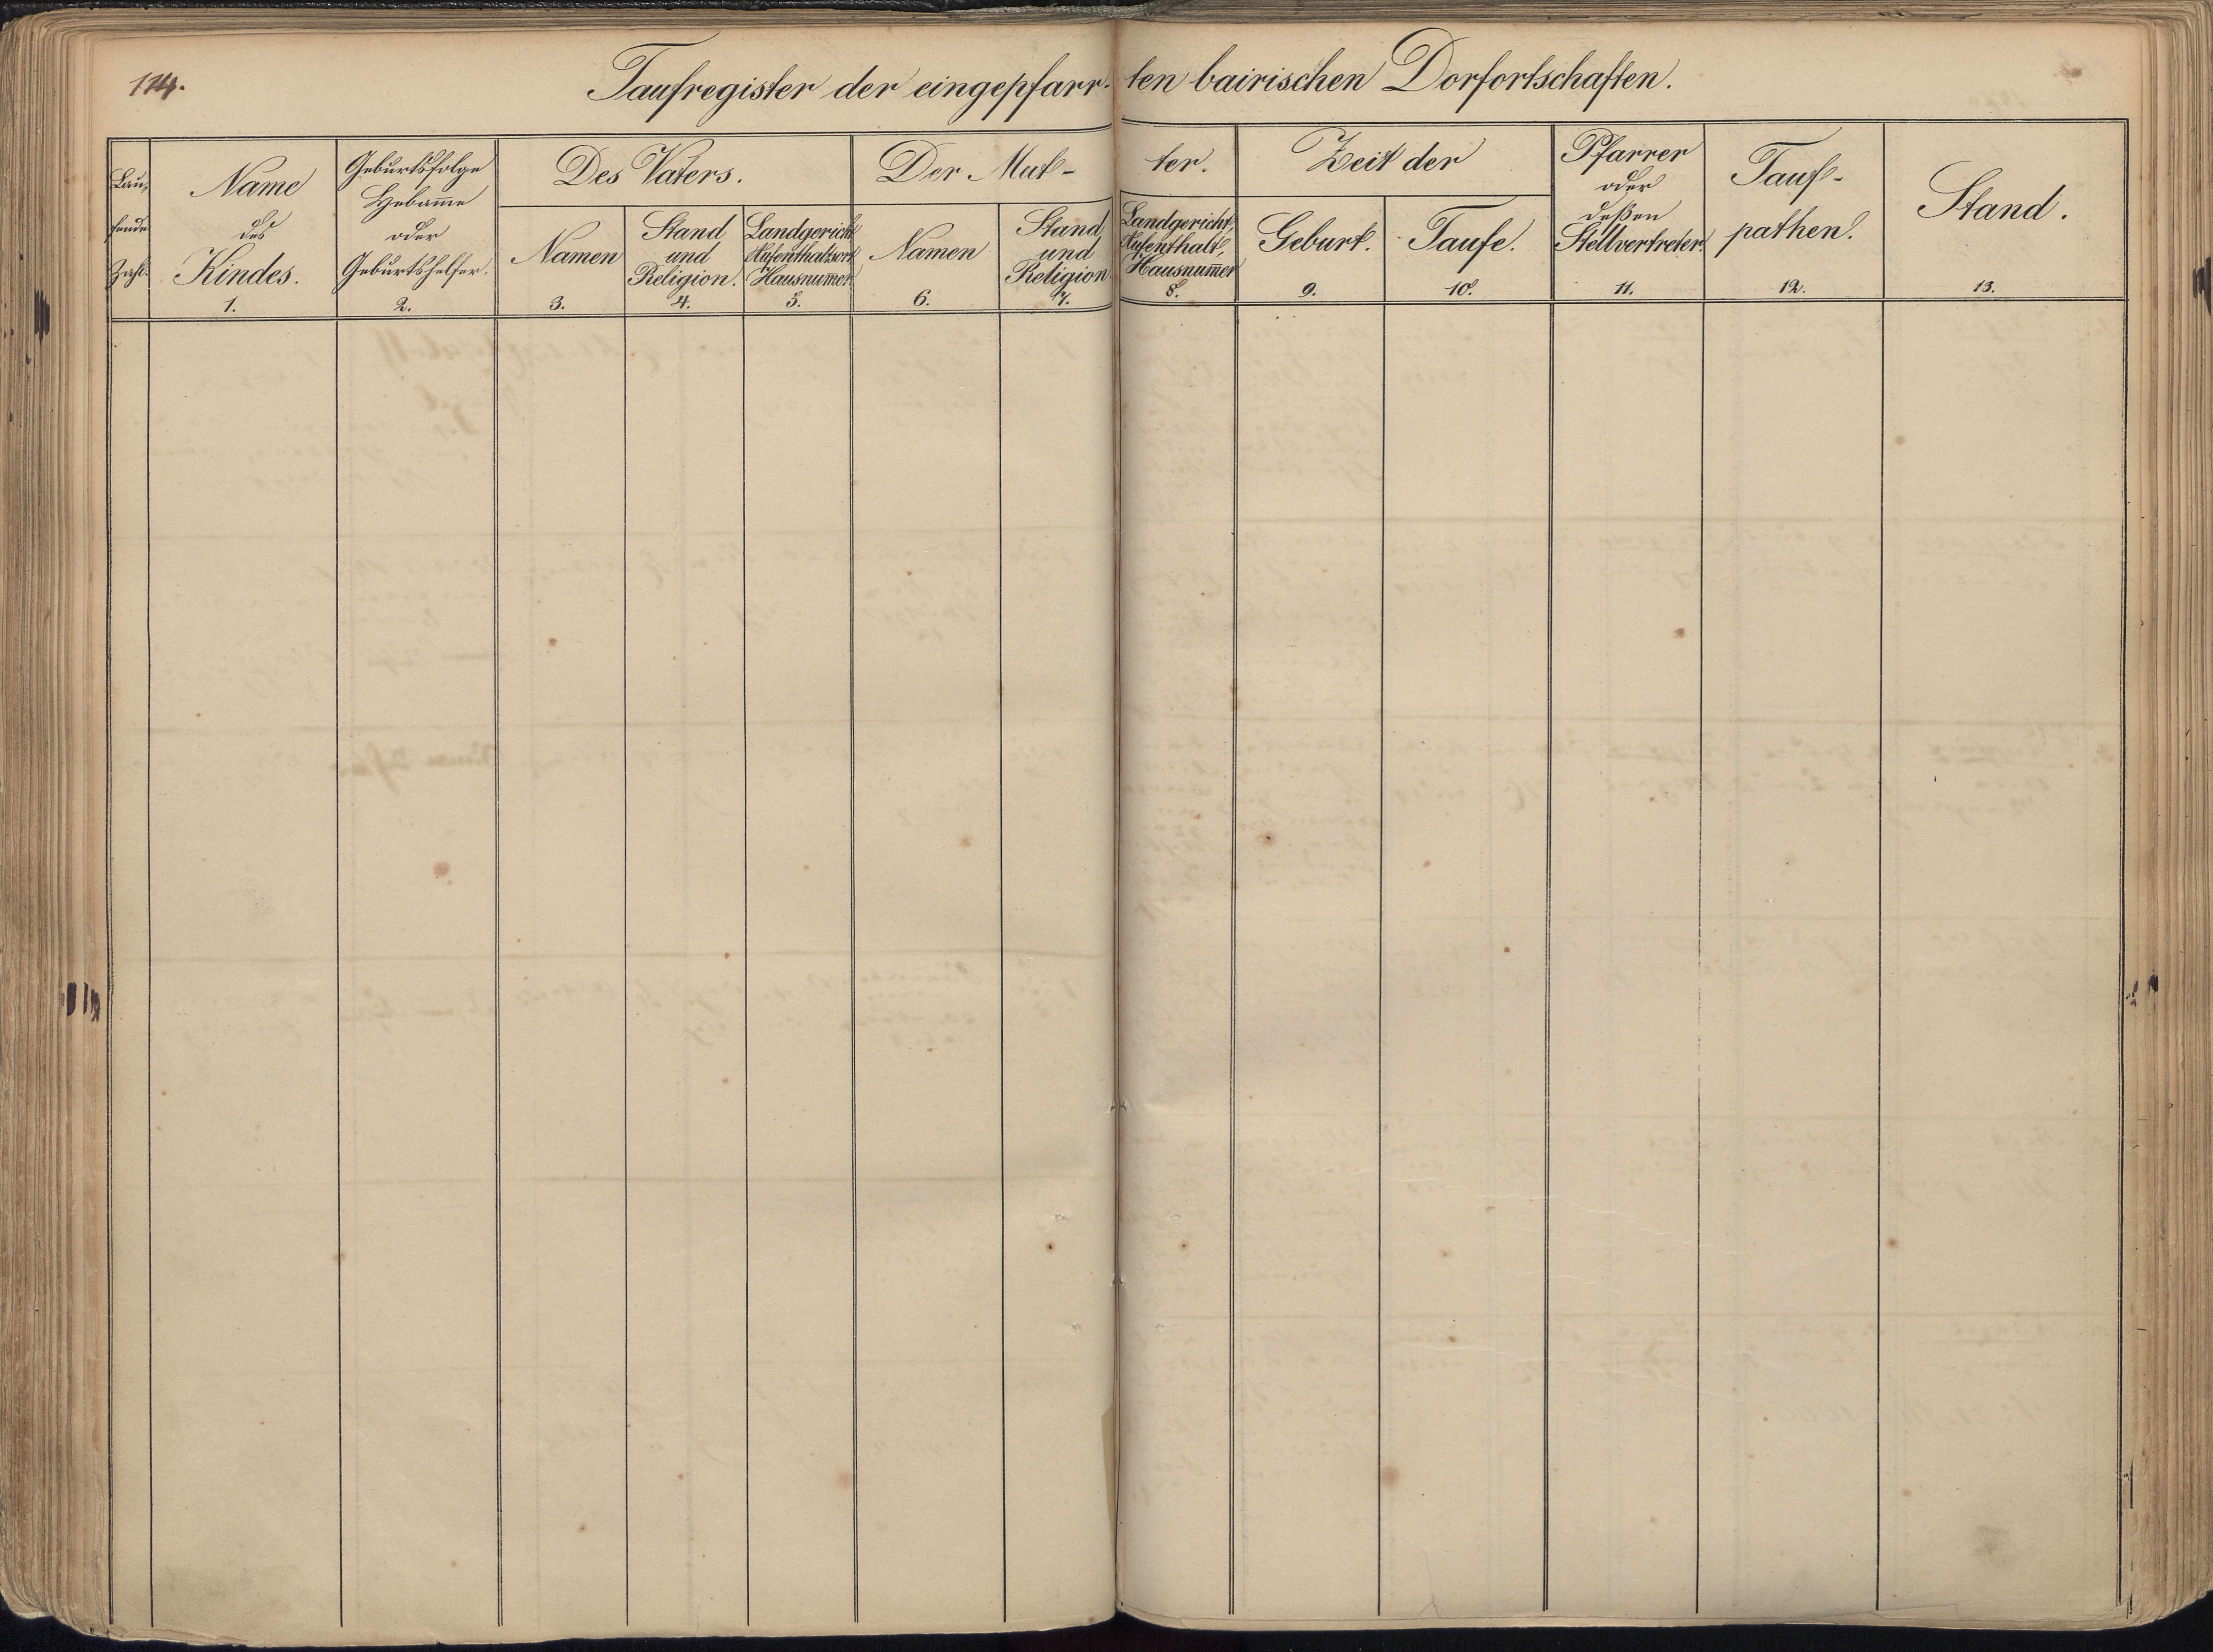 114.
Taufregister der eingepfarr- ten bairischen Dorfortschaften.
Lau-
fende
Zahl.
Name
des
Kindes.
1.
Geburtsfolge
Hebam̅e
oder
Geburtshelfer.
2.
Des Vaters.
Namen
3.
Stand
und
Religion.
4.
Landgericht
Aufenthaltsort
Hausnum̅er
5.
Der Mut- ter.
Namen
6.
Stand
und
Religion
7.
Landgericht,
Aufenthalt,
Hausnum̅er
8.
Zeit der
Geburt.
9.
Taufe.
10.
Pfarrer
oder
deßen
Stellvertreter.
11.
Tauf-
pathen.
12.
Stand.
13.